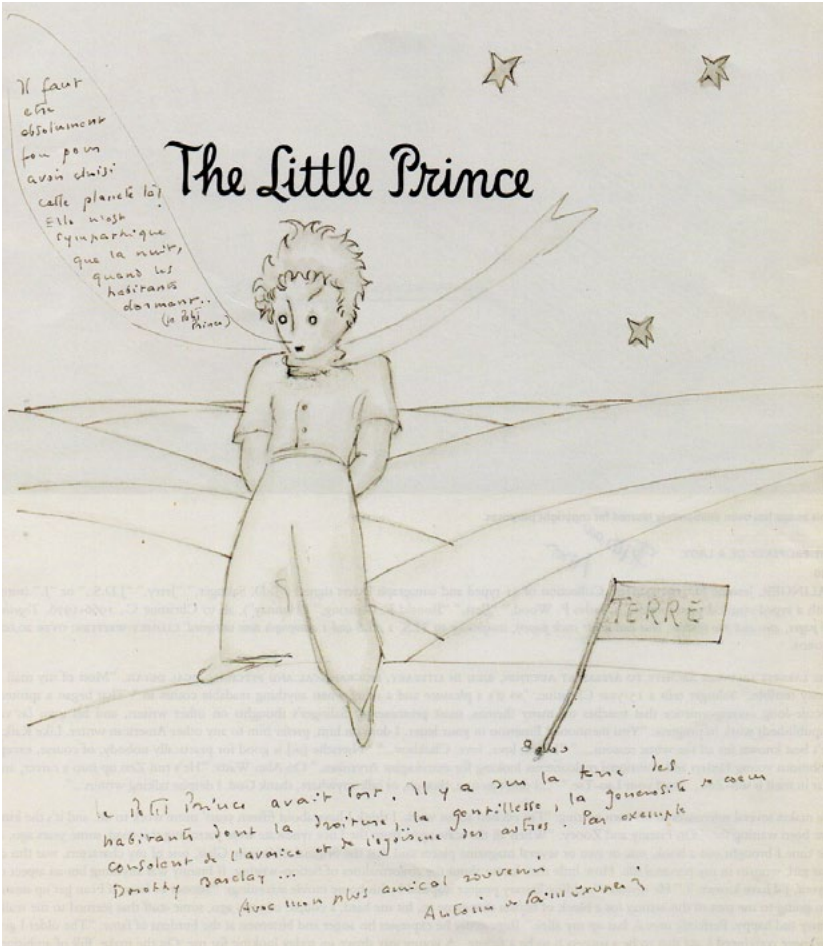 Il faut
etre
absolument
fou pour
avoir choisi
cette planete là!
Elle n'est
sympathique
que la nuit,
quand les
habitants
dorment..
(le Petit
Prince)
The Little Prince
TERRE
le Petit Prince avait tort. Il y a sur la terre des
habitants dont la droiture, la gentillesse, la generosité de coeur
consolent de l'avarice et de l'égoïsme des autres. Par exemple
Dorothy Barclay ...
Avec mon plus amical souvenir
Antoine de Saint Exupéry